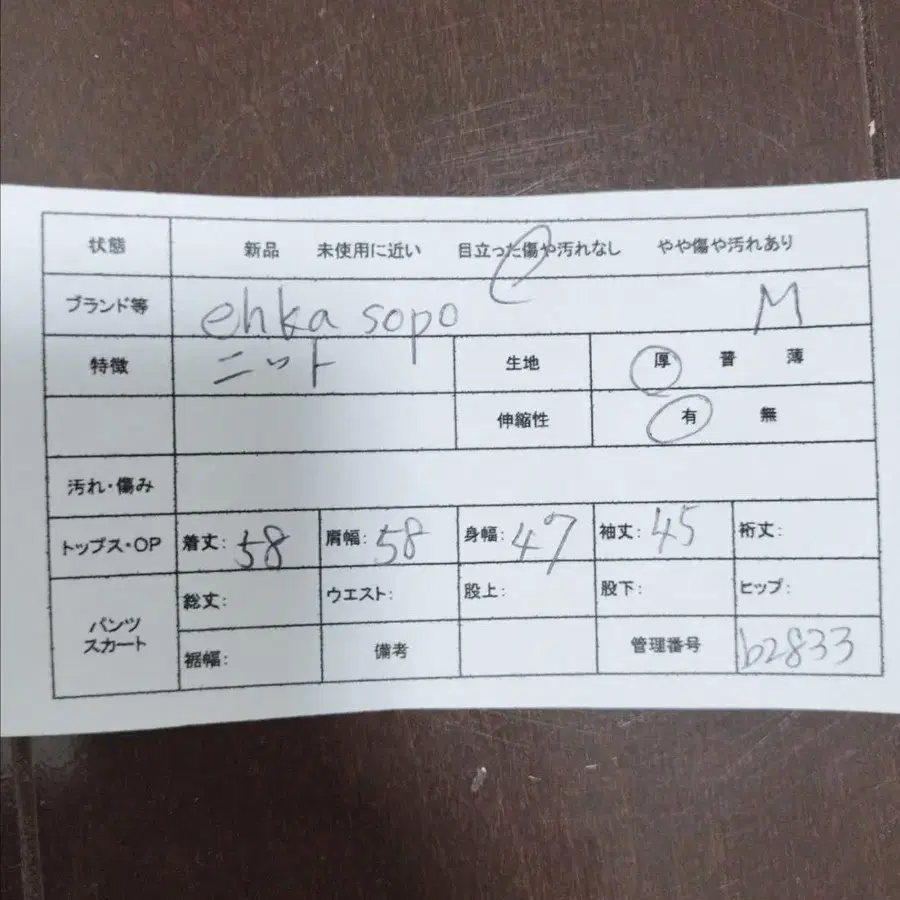 状態 新品 未使用に近い 目立った傷や汚れなし やや傷や汚れあり
ブランド等 ehka sopo M
特徴 ニット 生地 厚 普 薄
伸縮性 有 無
汚れ・傷み
トップス・OP 着丈: 58 肩幅: 58 身幅: 47 袖丈: 45 裄丈:
パンツ スカート 総丈: ウエスト: 股上: 股下: ヒップ:
裾幅: 備考 管理番号 b2833